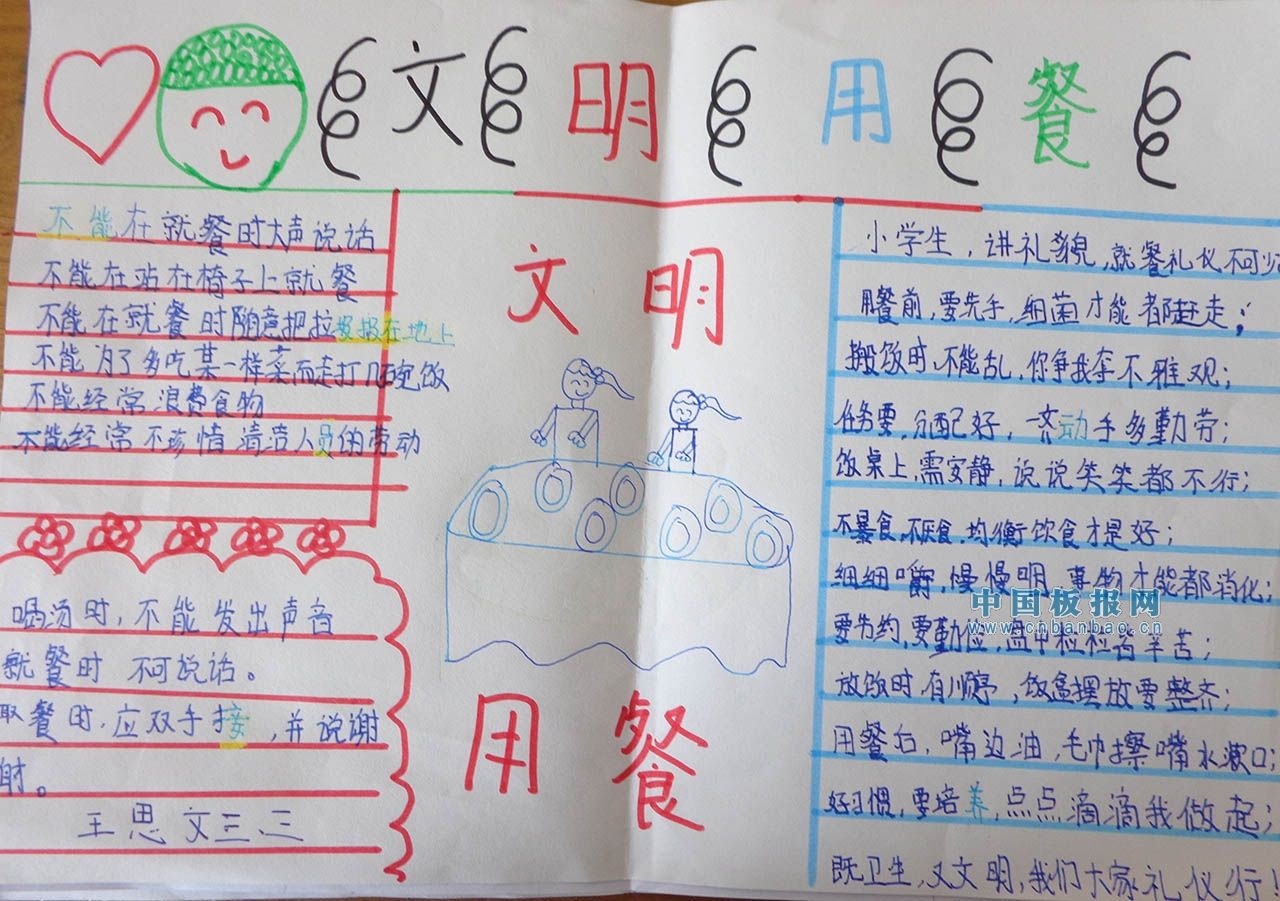 文明用餐
不能在就餐时大声说话
不能在站在椅子上就餐
不能在就餐时随意把垃圾扔在地上
不能为了多吃某一样菜而走打几碗饭
不能经常浪费食物
不能经常不珍惜清洁人员的劳动
喝汤时,不能发出声音
就餐时不可说话。
取餐时,应双手接,并说谢
谢。
王思文三.三
文明
用餐
小学生,讲礼貌,就餐礼仪不可少
用餐前,要先手,细菌才能都赶走;
搬饭时,不能乱,你争我夺不雅观;
任务要,分配好,一齐动手多勤劳;
饭桌上,需安静,说说笑笑都不行;
不暴食,不厌食,均衡饮食才是好;
细细嚼,慢慢明,事物才能都消化;
要为约,要勤俭,盘中粒粒皆辛苦;
放饭时,有顺序,饭盒摆放要整齐;
用餐后,嘴边油,毛巾擦嘴水漱口;
好习惯,要培养,点点滴滴我做起;
既卫生,又文明,我们大家礼仪行!
中国板报网
www.cnbanbao.cn